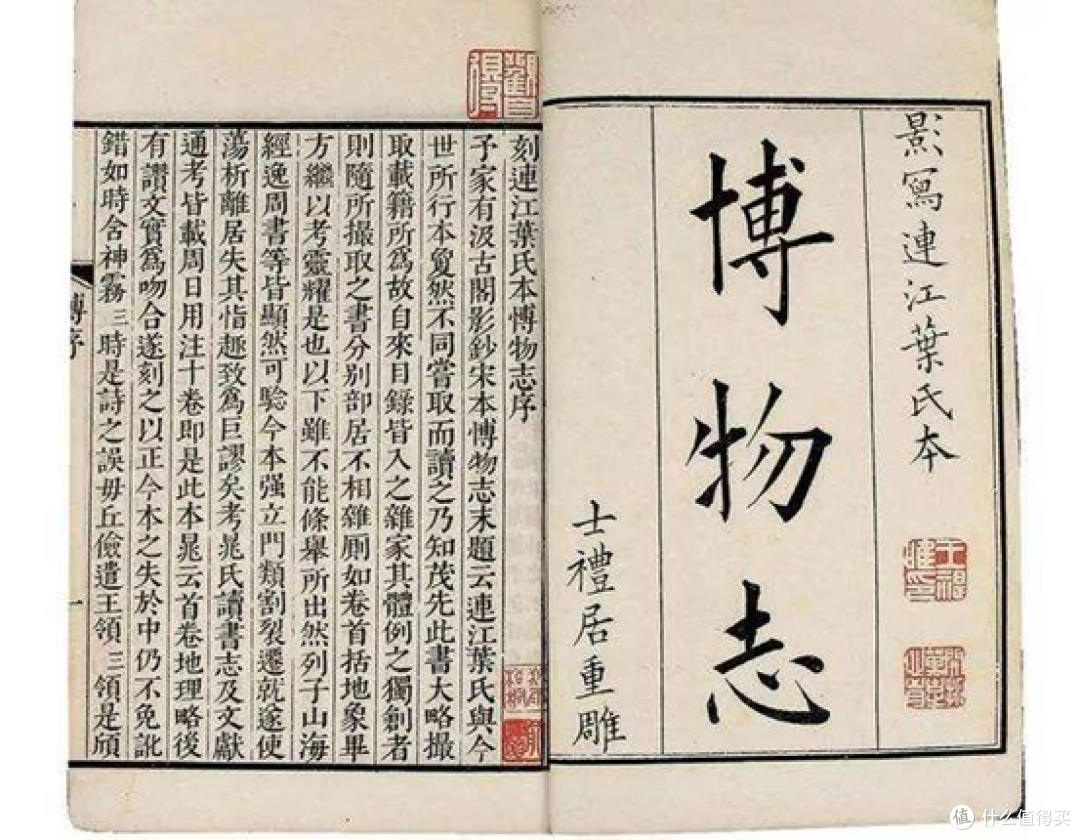 影寫連江葉氏本
博物志
士禮居重雕
刻連江葉氏本博物志序
予家有汲古閣影鈔宋本博物志末題云連江葉氏與今
世所行本夐然不同嘗取而讀之乃知茂先此書大略撮
取載籍所爲故自來目錄皆入之雜家其體例之獨創者
則隨所撮取之書分別部居不相雜厠如卷首括地象畢
方繼以考靈耀是也以下雖不能條舉所出然列子山海
經逸周書等皆顯然可騐今本强立門類割裂遷就遂使
蕩析離居失其恉趣致爲巨謬矣考晁氏讀書志及文獻
通考皆載周日用注十卷即是此本晁云首卷地理略後
有讚文實爲吻合遂刻之以正今本之失於中仍不免訛
錯如時含神霧三時是詩之誤毋丘儉遣王領三領是頎
博序
一
值 什么值得买